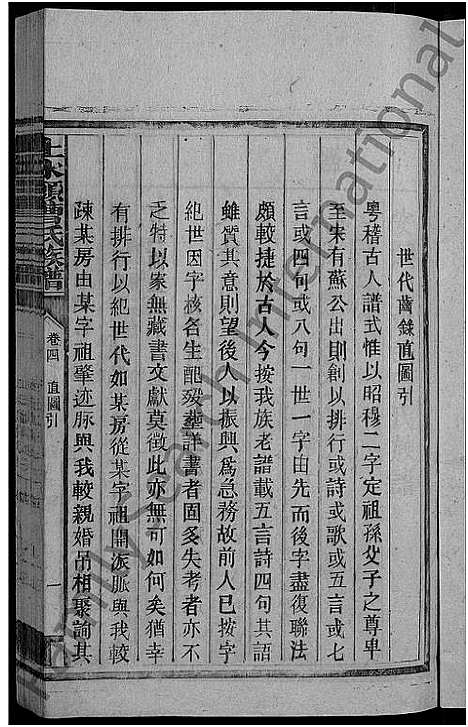 世代齒錄直圖引
粵稽古人譜式惟以昭穆二字定祖孫父子之尊卑
至宋有蘇公出則創以排行或詩或歌或五言或七
言或四句或八句一世一字由先而後字盡復聯法
頗較捷於古人今按我族老譜載五言詩四句其語
雖質其意則望後人以振興為急務故前人已按字
紀世因字核名生配歿塟詳書者固多失考者亦不
乏特以家無藏書文獻莫徵此亦無可如何矣猶幸
有排行以紀世代如某房從某字祖開派脈與我較
疎某房由某字祖肇迹脈與我較親婚吊相聚諭其
氏族譜
卷四
直圖引
一
Family Search International